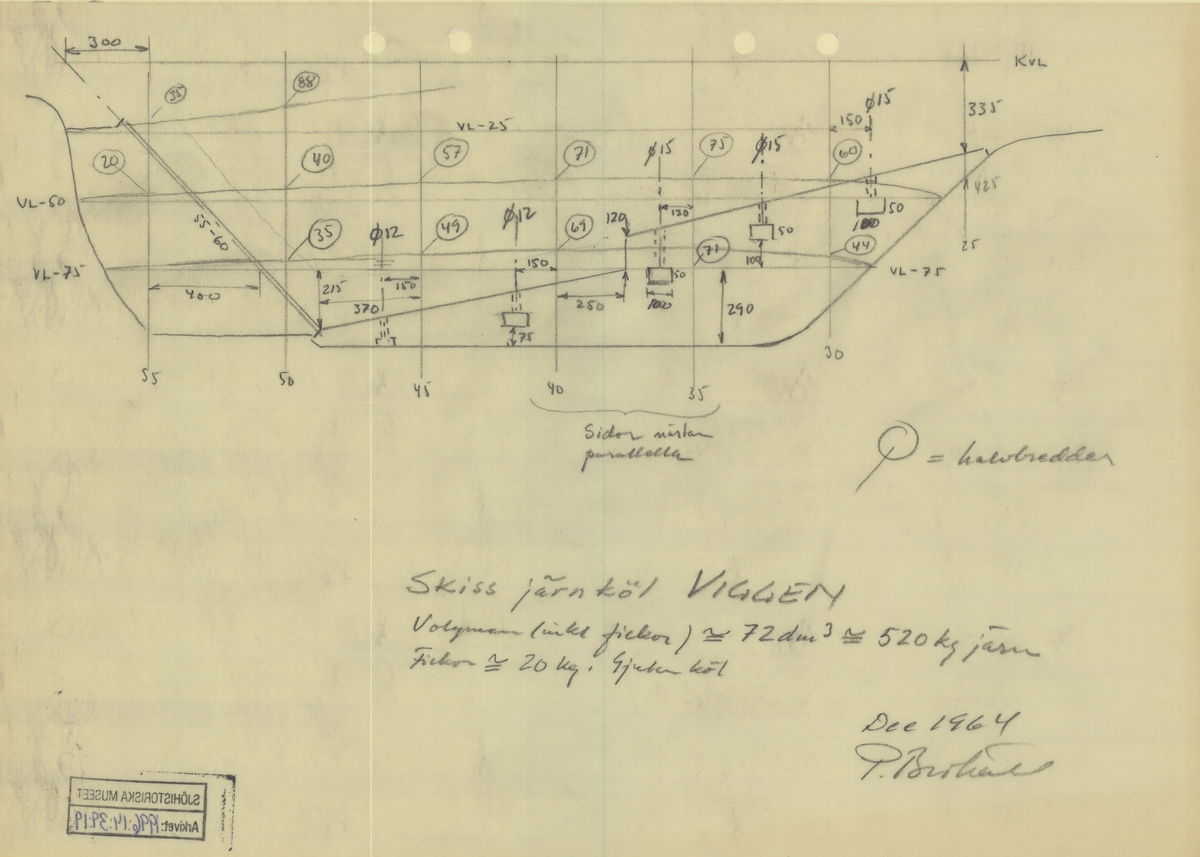 300
KVL
35
88
φ15
335
150
VL-25
20
40
57
71
φ15
75
φ15
60
425
VL-50
55-60
35
φ12
49
φ12
69
120
120
50
50
100
44
25
VL-75
400
215
370
150
150
250
50
100
71
100
290
VL-75
75
55
50
45
40
35
30
Sidor nästan
parallella
= halvbredder
Skiss järnköl VIGGEN
Volymen (inkl fickor) ≅ 72 dm³ ≅ 520 kg järn
Fickor ≅ 20 kg. Gjuten köl
Dec 1964
P. Brohäll
SJÖHISTORISKA MUSEET
Arkivet: 1996:14:39:19